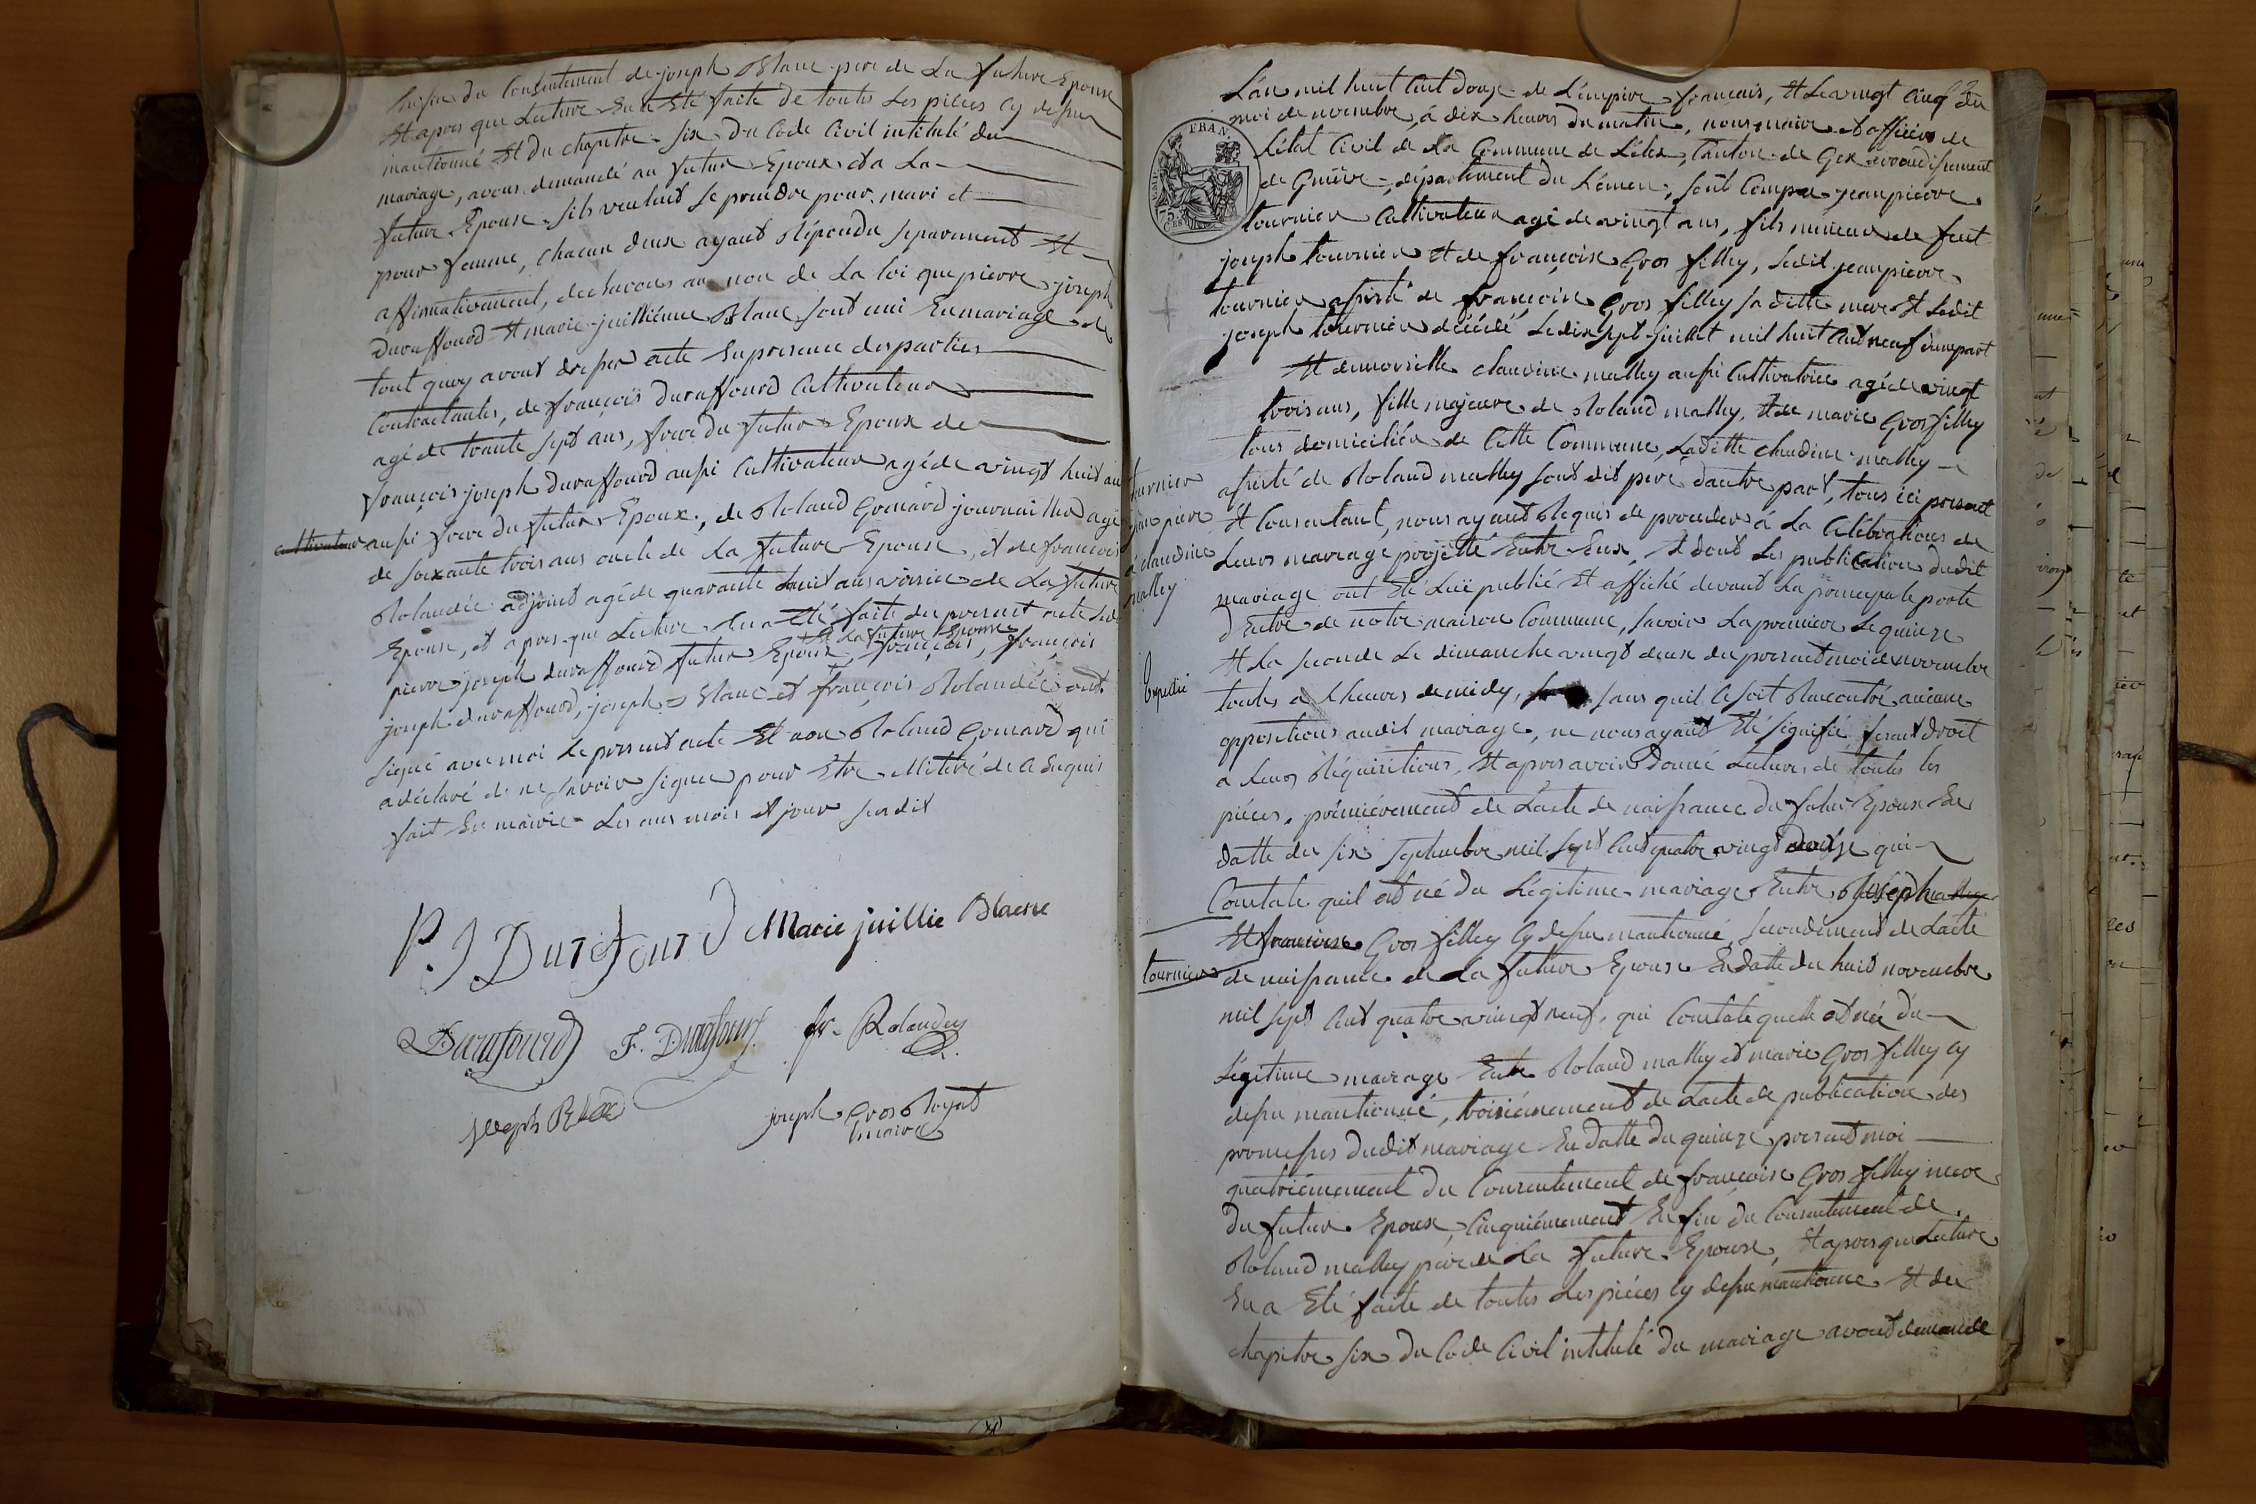 Enfin du Consentement de joseph Blanc pere de La future Epouse
Et apres que Lecture En a Eté faite de toutes Les pièces cy dessus
mantionné Et du chapitre six Du Code Civil intitulé du
mariage, avons demandé au futur Epoux et a La
future Epouse sils veulent se prendre pour mari et
pour femme, chacun deux ayant Répondu separement Et
affirmativement, declarons au non de La loi que pierre joseph
Duraffourd Et marie juillienne Blanc sont uni En mariage de
tout quoy avons dressé acte En presence des parties
Contractantes, de françois Duraffourd Cultivateur
agé de trante sept ans, frere du futur Epoux de
françois joseph Duraffourd aussi Cultivateur agé de vingt huit ans
aussi frere du futur Epoux, de Roland Gonard journaillier agé
de soixante trois ans oncle de La future Epouse, et de françois
Rolandée adjoint agé de quarante huit ans voisin de La future
Epouse, et apres que Lecture En a Eté faite du present acte Led
Et la future Epouse
pierre joseph duraffourd futur Epoux, françois, françois
joseph duraffourd, joseph Blanc et françois Rolandée ont
signé avec moi Le present acte Et non Roland Gonard qui
a déclaré de ne savoir signer pour Etre Illiteré de ce Enquis
fait En mairie Les ans mois et jour susdit
P. J Durafourd Marie juillie Blanc
Durafourd F. Durafour fr. Rolandey
joseph Blanc joseph Gros Royat
maire
L'an mil huit Cent douze de L'empire français, Et Le vingt Cinq du
moi de novembre, à dix heures du matin, nous maire et officier de
L'état Civil de La Commune de Lélex, Canton de Gex arrondissement
de Genève, département du Léman, sont Comparu jean pierre
FRAN.
tournier Cultivateur agé de vingt ans, fils mineur de feut
joseph tournier Et de françoise Gros filley, Ledit jean pierre
tournier assisté de françoise Gros filley sa ditte mere Et Ledit
joseph tournier décédé Le dix sept juillet mil huit Cent neuf d'une part
Et demoiselle claudine mathey aussi Cultivatrice agé de vingt
trois ans, fille majeure de Roland mathey, Et de marie Gros filley
tous domiciliér de Cette Commune, Laditte claudine mathey
assisté de Roland mathey sont dit pere d'autre part, tous ici present
Et Consentant, nous ayant Requis de proceder à La Célébrations de
Leurs mariage projetté Entre Eux, Et dont Les publication dudit
mariage ont Eté Luë publié Et affiché devant La principale porte
d'Entre de notre maison Commune, savoir La premiere Le quinze
Et La seconde Le dimanche vingt deux du present moi de novembre
toutes à heures de midy, sans quil Ce soit Rancontré aucune
oppositions audit mariage, ne nous ayant Eté signifié fesant droit
a Leurs Réquisitions, Et apres avoir donné Lecture de toutes Les
pièces, premièrement de Lacte de naissance du futur Epoux En
datte du six septembre mil sept Cent quatre vingt douze qui
Constate quil est né du Légitime mariage Entre Joseph
Et françoise Gros filley cy dessu mantionné, secondement de Lacte
de naissance de La future Epouse En datte du huit novembre
mil sept Cent quatre vingt neuf, qui Constate quelle est née du
Légitime mariage Entre Roland mathey et marie Gros filley cy
dessu mantionné, troisiémement de Lacte de publication des
promesses dudit mariage En datte du quinze present moi
quatriémement du Consentement de françoise Gros filley mere
du futur Epoux, Cinquiémement Enfin du Consentement de
Roland mathey pere de La future Epouse, Et apres que Lecture
En a Eté faite de toutes Les pièces cy dessu mantionné Et du
chapitre six du Code Civil intitulé du mariage avont demandé
tournier
jean pierre
à claudine
mathey
Expedié
tournier